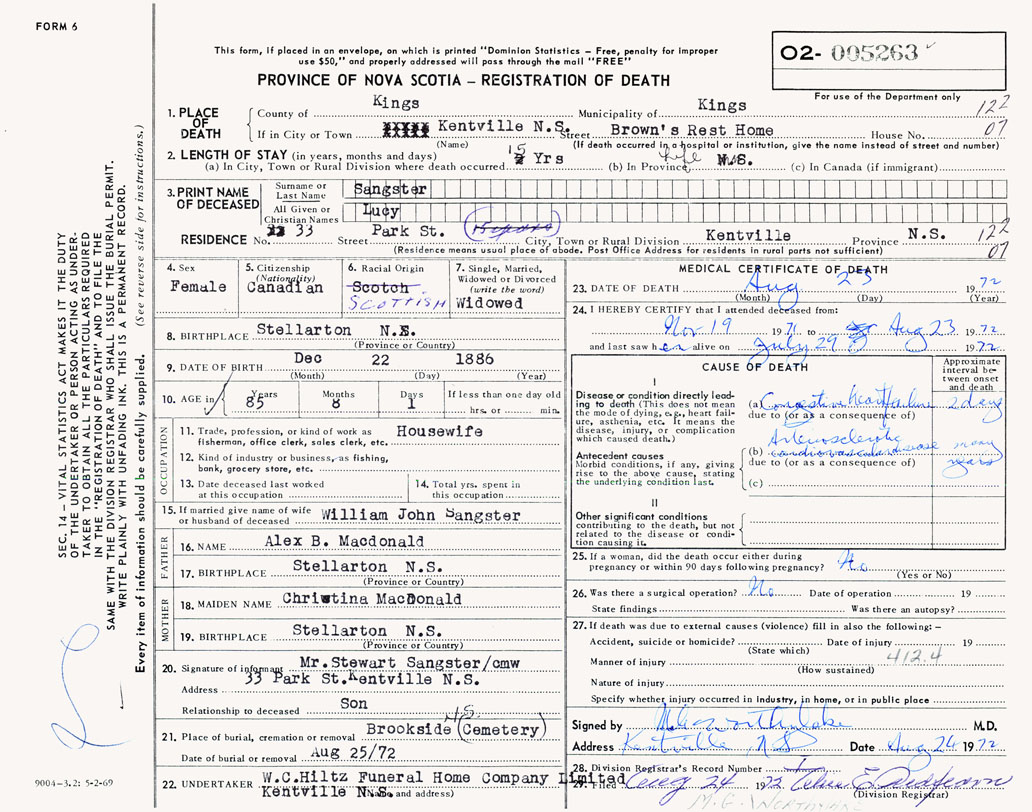 FORM 6
This form, if placed in an envelope, on which is printed "Dominion Statistics – Free, penalty for improper
use $50," and properly addressed will pass through the mail "FREE"
PROVINCE OF NOVA SCOTIA – REGISTRATION OF DEATH
O2- 005263
For use of the Department only
122
07
1. PLACE OF DEATH
County of Kings Municipality of Kings
If in City or Town Kentville N.S. Street Brown's Rest Home House No.
(Name) (If death occurred in a hospital or institution, give the name instead of street and number)
2. LENGTH OF STAY (in years, months and days)
(a) In City, Town or Rural Division where death occurred 15 Yrs (b) In Province Life N.S. (c) In Canada (if immigrant)
3. PRINT NAME OF DECEASED
Surname or Last Name Sangster
All Given or Christian Names Lucy
RESIDENCE No. 33 Street Park St. City, Town or Rural Division Kentville Province N.S.
122
07
(Residence means usual place of abode. Post Office Address for residents in rural parts not sufficient)
4. Sex
Female
5. Citizenship (Nationality)
Canadian
6. Racial Origin
Scotch
SCOTTISH
7. Single, Married, Widowed or Divorced (write the word)
Widowed
8. BIRTHPLACE Stellarton N.S.
(Province or Country)
9. DATE OF BIRTH Dec 22 1886
(Month) (Day) (Year)
10. AGE in Years 85 Months 8 Days 1 If less than one day old hrs. or min.
OCCUPATION
11. Trade, profession, or kind of work as fisherman, office clerk, sales clerk, etc. Housewife
12. Kind of industry or business, as fishing, bank, grocery store, etc.
13. Date deceased last worked at this occupation
14. Total yrs. spent in this occupation
15. If married give name of wife or husband of deceased William John Sangster
FATHER
16. NAME Alex B. Macdonald
17. BIRTHPLACE Stellarton N.S.
(Province or Country)
MOTHER
18. MAIDEN NAME Christina MacDonald
19. BIRTHPLACE Stellarton N.S.
(Province or Country)
20. Signature of informant Mr.Stewart Sangster/cmw
Address 33 Park St.Kentville N.S.
Relationship to deceased Son
21. Place of burial, cremation or removal Brookside (Cemetery) N.S.
Date of burial or removal Aug 25/72
22. UNDERTAKER W.C.Hiltz Funeral Home Company Limited
Kentville N.S. (Name and address)
MEDICAL CERTIFICATE OF DEATH
23. DATE OF DEATH Aug 23 1972
(Month) (Day) (Year)
24. I HEREBY CERTIFY that I attended deceased from:
Nov 19 1971 to Aug 23 1972
and last saw her alive on July 29 1972
CAUSE OF DEATH
Approximate interval between onset and death
I
Disease or condition directly leading to death (This does not mean the mode of dying, e.g., heart failure, asthenia, etc. It means the disease, injury, or complication which caused death.)
(a) Congestive heart failure 2 days
due to (or as a consequence of)
Antecedent causes
Morbid conditions, if any, giving rise to the above cause, stating the underlying condition last.
(b) Arteriosclerotic cardiovascular disease many years
due to (or as a consequence of)
(c)
II
Other significant conditions
contributing to the death, but not related to the disease or condition causing it.
25. If a woman, did the death occur either during pregnancy or within 90 days following pregnancy? No
(Yes or No)
26. Was there a surgical operation? No Date of operation 19
State findings Was there an autopsy?
27. If death was due to external causes (violence) fill in also the following: –
Accident, suicide or homicide? Date of injury 19
(State which)
412.4
Manner of injury
(How sustained)
Nature of injury
Specify whether injury occurred in industry, in home, or in public place
Signed by M.D.
Address Kentville, N.S Date Aug 24 1972
28. Division Registrar's Record Number
29. Filed Aug 24 1972
(Division Registrar)
SEC. 14 – VITAL STATISTICS ACT MAKES IT THE DUTY
OF THE UNDERTAKER OR PERSON ACTING AS UNDER-
TAKER TO OBTAIN ALL THE PARTICULARS REQUIRED
IN THE "REGISTRATION OF DEATH" AND FILE THE
SAME WITH THE DIVISION REGISTRAR WHO SHALL ISSUE THE BURIAL PERMIT.
WRITE PLAINLY WITH UNFADING INK. THIS IS A PERMANENT RECORD.
Every item of information should be carefully supplied. (See reverse side for instructions.)
9004-3.2: 5-2-69